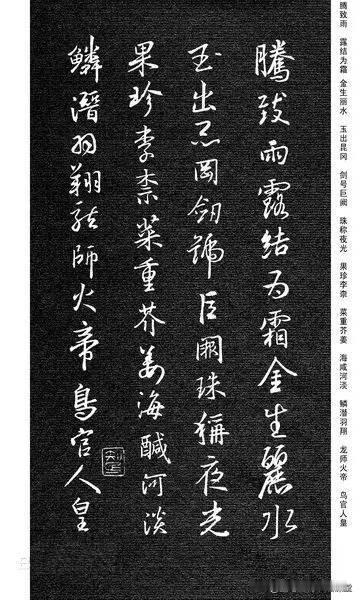 腾致雨 露结为霜 金生丽水 玉出昆冈 剑号巨阙 珠称夜光 果珍李柰 菜重芥姜 海咸河淡 鳞潜羽翔 龙师火帝 鸟官人皇
騰致雨露結为霜金生麗水
玉出昆岡劒號巨闕珠稱夜光
果珍李柰菜重芥姜海鹹河淡
鱗潛羽翔龍師火帝鳥官人皇